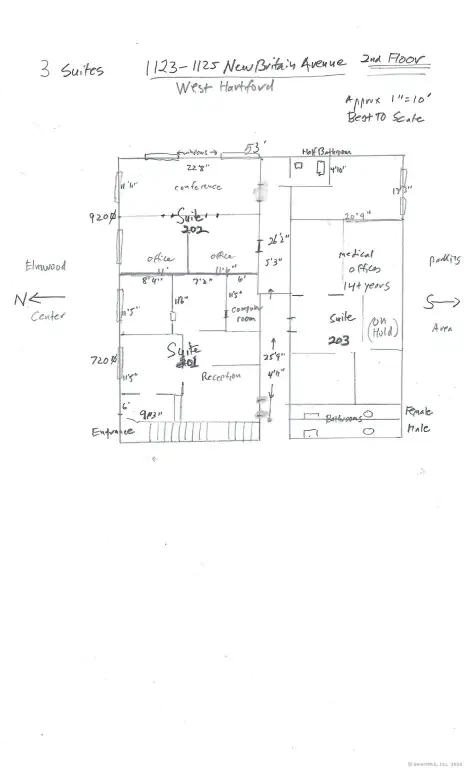 3 Suites
1123-1125 New Britain Avenue
2nd Floor
West Hartford
Approx 1"=10'
Best to Scale
windows
53'
Half Bathroom
22'8"
4'10"
11'11"
conference
920
Suite
202
20'9"
26'2"
office
office
5'3"
11'6"
medical
offices
14+ years
Elmwood
parking
N
S
Center
Area
8'4"
7'2"
6'
11'5"
11'5"
computer
room
Suite
203
(on
Hold)
720
Suite
201
25'9"
4'11"
11'5"
Reception
6'
9'3"
Entrance
Bathrooms
Female
Male